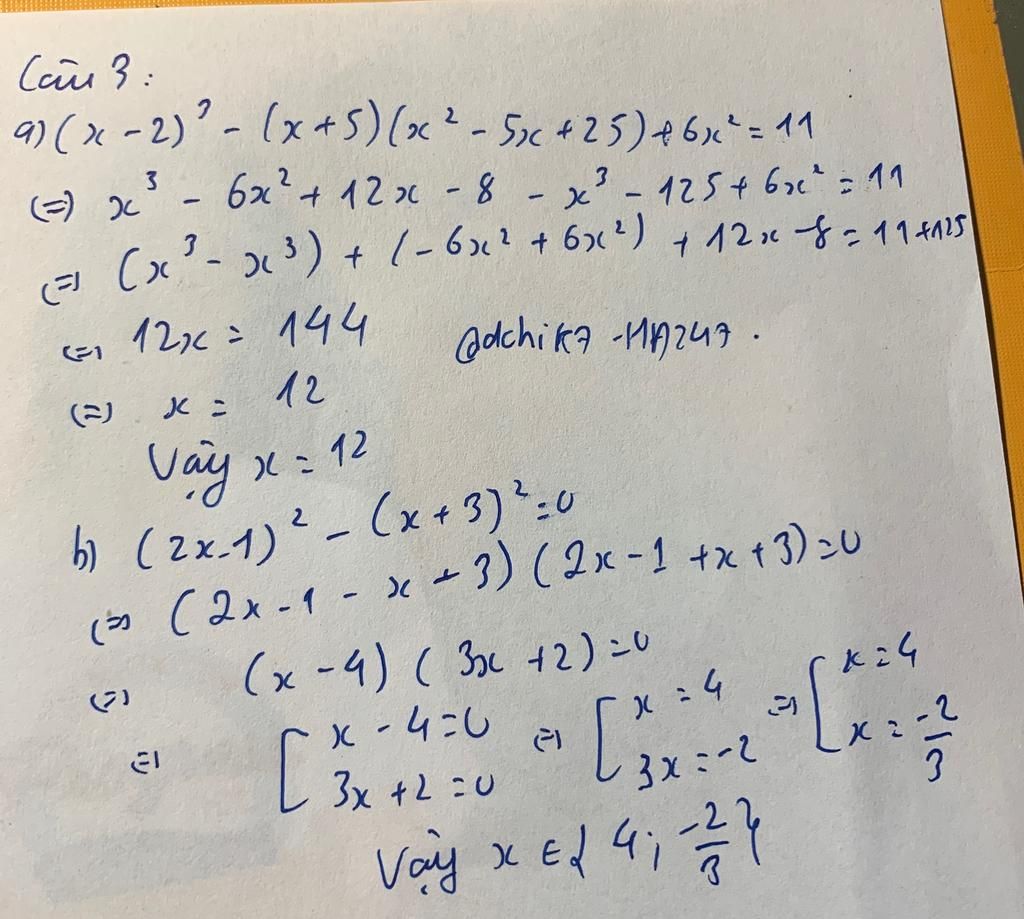 Câu 3:
a) (x - 2)³ - (x + 5)(x² - 5x + 25) + 6x² = 11
(=) x³ - 6x² + 12x - 8 - x³ - 125 + 6x² = 11
(=) (x³ - x³) + (-6x² + 6x²) + 12x - 8 = 11 + 125
(=) 12x = 144 @dchik7 - HA247.
(=) x = 12
Vậy x = 12
b) (2x - 1)² - (x + 3)² = 0
(=) (2x - 1 - x - 3)(2x - 1 + x + 3) = 0
(=) (x - 4)(3x + 2) = 0
(=) [ x - 4 = 0 (=) [ x = 4 (=) [ x = 4
3x + 2 = 0 3x = -2 x = -2/3
Vậy x ∈ { 4; -2/3 }